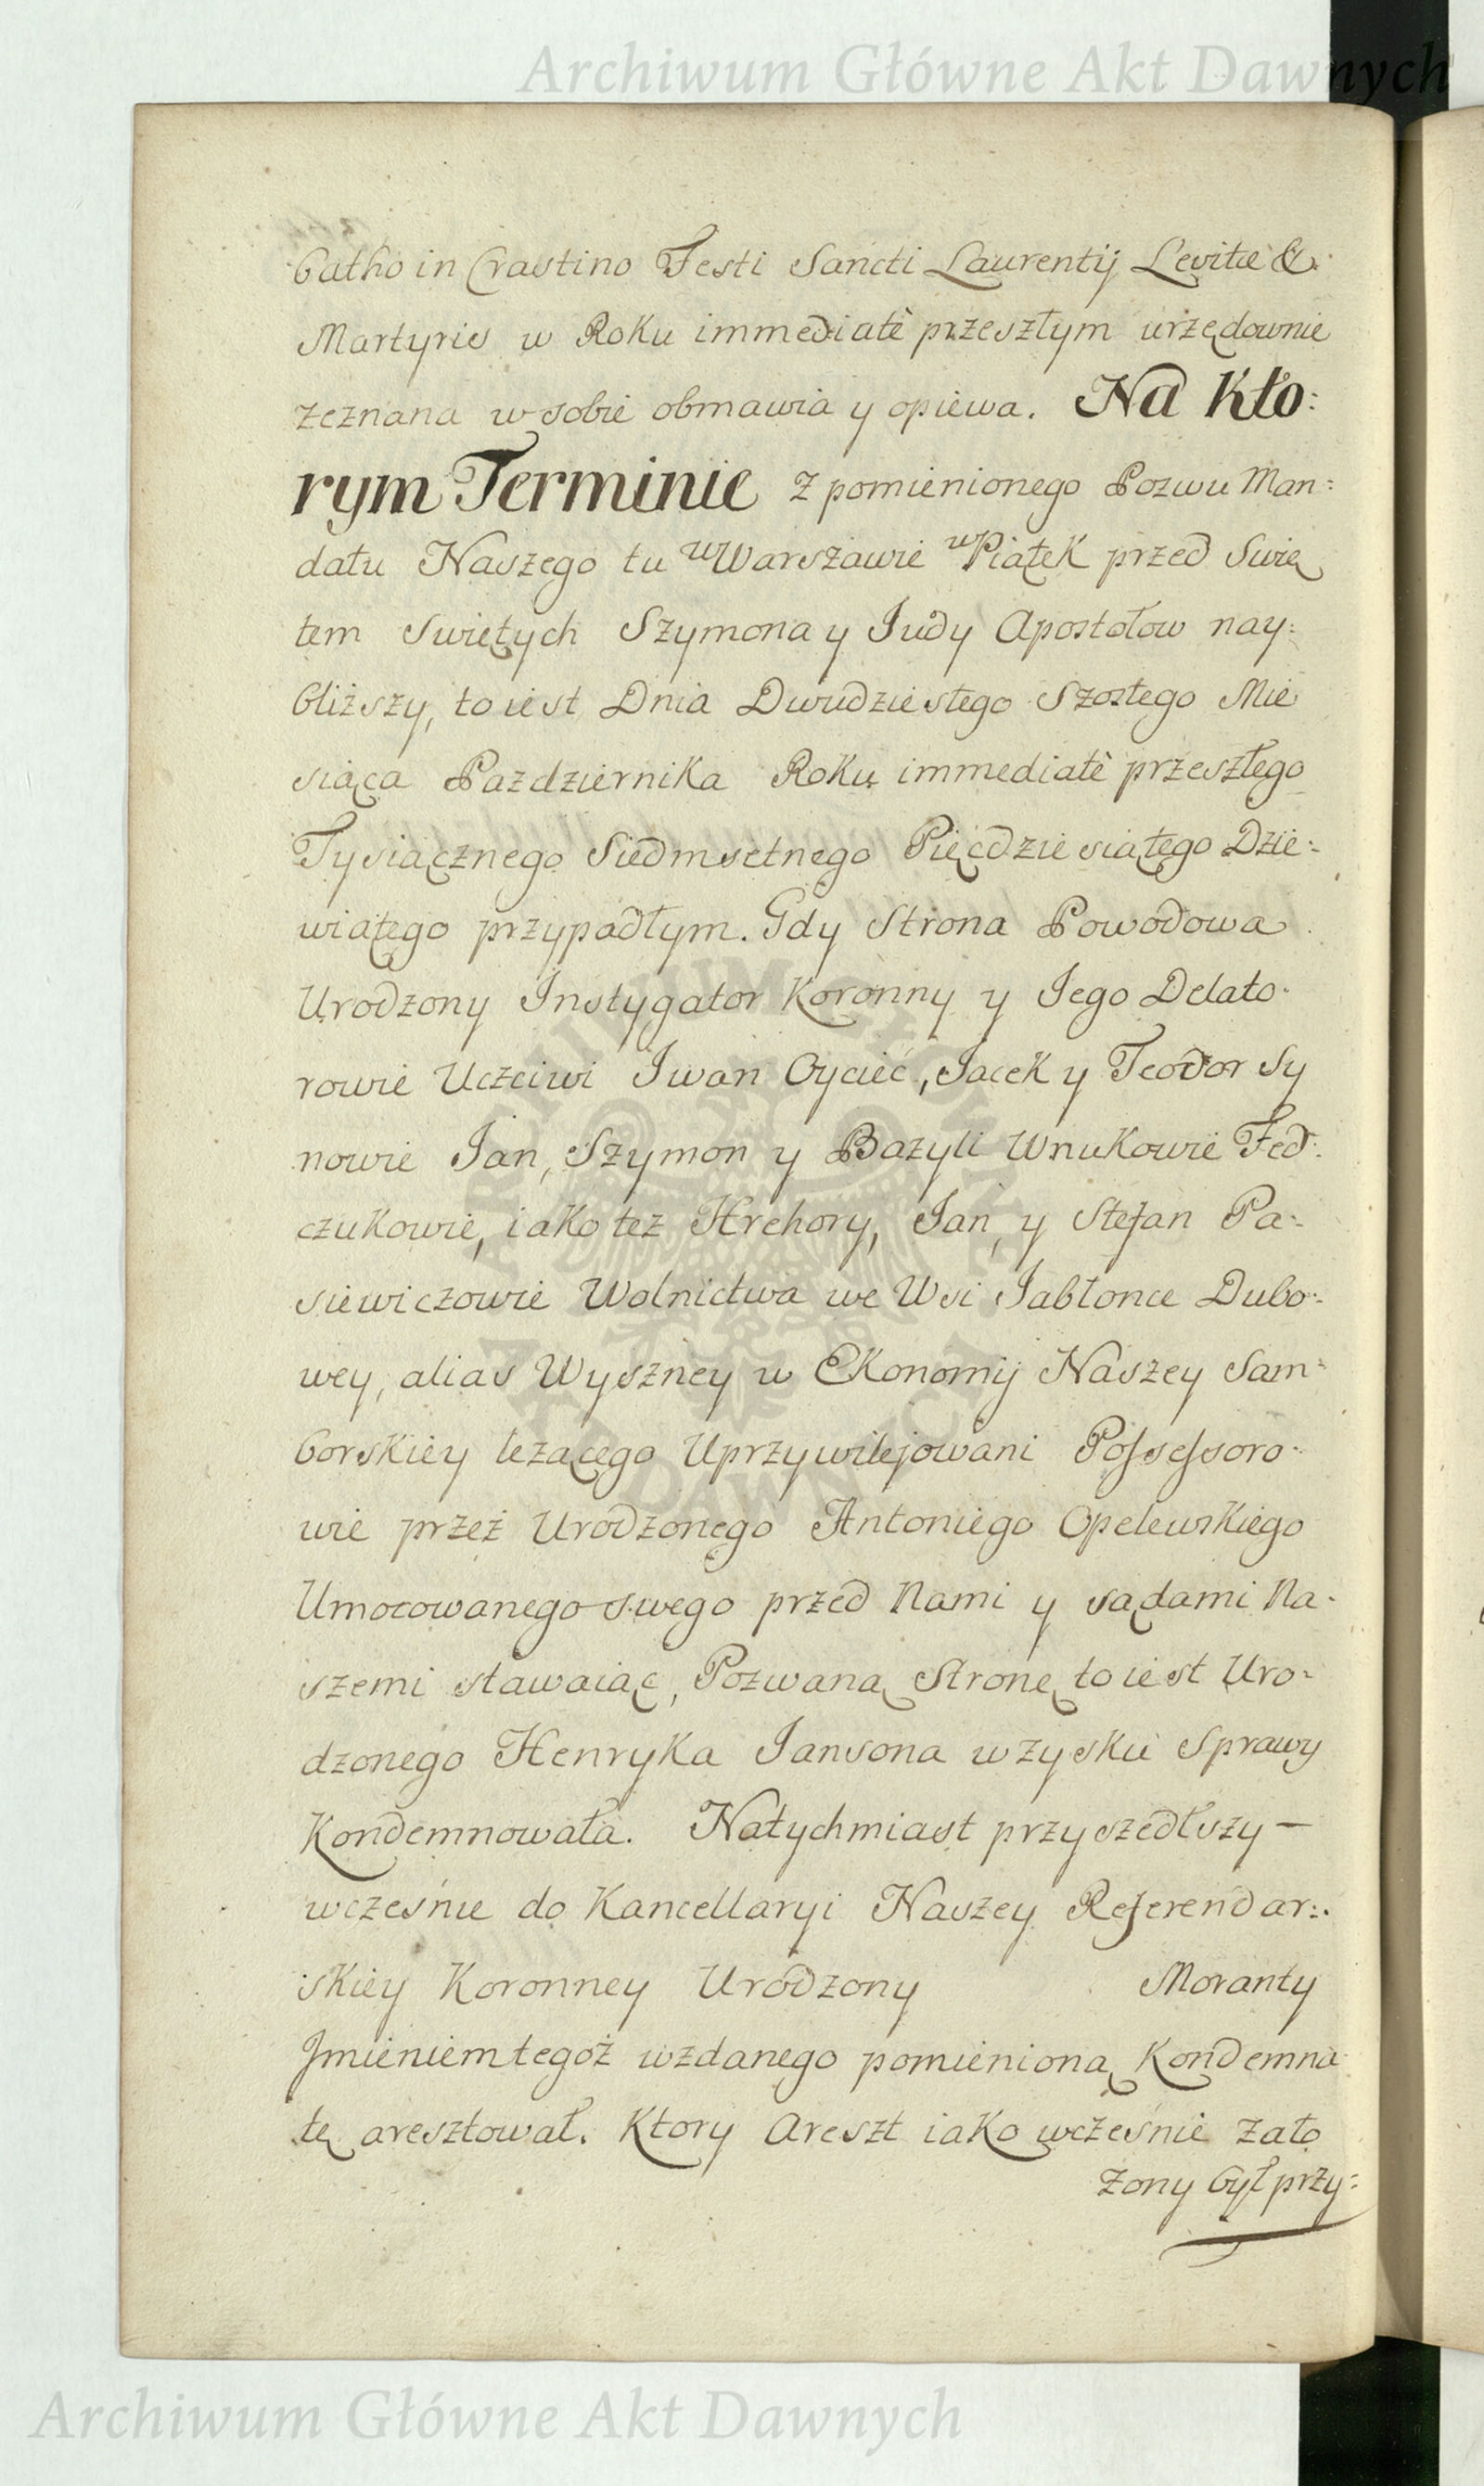 Archiwum Główne Akt Dawnych
batho in Crastino Festi Sancti Laurentij Levitæ &
Martyris w Roku immediatè przeszłym urzędownie
zeznana w sobie obmawia y opiewa. Na kto:
rym Terminie z pomienionego Pozwu Man:
datu Naszego tu w Warszawie w Piątek przed Swię
tem Swiętych Szymona y Judy Apostołow nay:
bliższy, to iest Dnia Dwudziestego Szostego Mie
siąca Pazdziernika Roku immediatè przeszłego
Tysiącznego Siedmsetnego Pięcdziesiątego Dzie:
wiątego przypadłym. Gdy Strona Powodowa
Urodzony Instygator Koronny y Jego Delato:
rowie Uczciwi Iwan Oyciec, Jacek y Teodor Sy
nowie Jan, Szymon y Bazyli Wnukowie Fed:
czukowie, iako tez Hrehory, Jan, y Stefan Pa:
siewiczowie Wolnictwa we Wsi Jabłonce Dubo:
wey, alias Wyszney w Ekonomij Naszey Sam:
borskiey leżącego Uprzywilejowani Possessoro:
wie przez Urodzonego Antoniego Opelewskiego
Umocowanego swego przed Nami y sądami Na:
szemi stawaiąc, Pozwaną Stronę to iest Uro:
dzonego Henryka Jansona w zysku Sprawy
Kondemnowała. Natychmiast przyszedłszy —
wcześnie do Kancellaryi Naszey Referendar:
skiey Koronney Urodzony Moranty
Jmieniem tegoż wzdanego pomienioną Kondemna
tę aresztował. Ktory Areszt iako wcześnie zało
żony był przy:
ARCHIWUM GŁÓWNE AKT DAWNYCH
Archiwum Główne Akt Dawnych